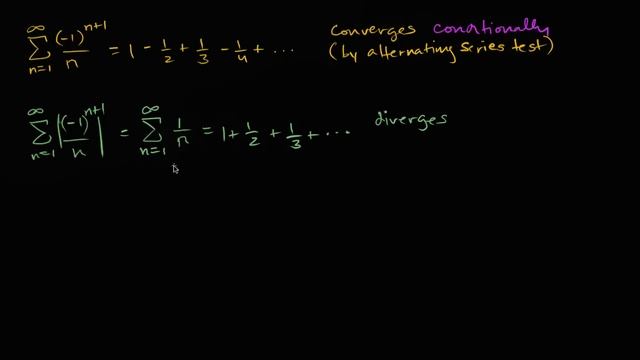 ∞ ∑ n=1 (-1)^(n+1)/n = 1 - 1/2 + 1/3 - 1/4 + ... Converges conditionally
(by alternating series test)
∞ ∑ n=1 |(-1)^(n+1)/n| = ∞ ∑ n=1 1/n = 1 + 1/2 + 1/3 + ... diverges